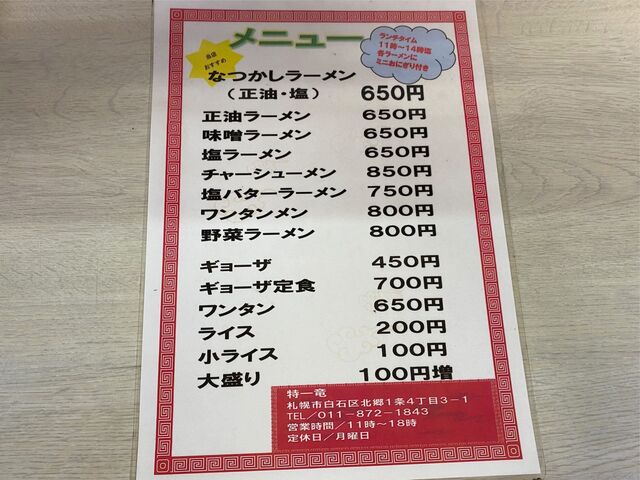 メニュー
当店
おすすめ
ランチタイム
11時〜14時迄
各ラーメンに
ミニおにぎり付き
なつかしラーメン
（正油・塩） 650円
正油ラーメン 650円
味噌ラーメン 650円
塩ラーメン 650円
チャーシューメン 850円
塩バターラーメン 750円
ワンタンメン 800円
野菜ラーメン 800円
ギョーザ 450円
ギョーザ定食 700円
ワンタン 650円
ライス 200円
小ライス 100円
大盛り 100円増
特一竜
札幌市白石区北郷1条4丁目3−1
TEL／011−872−1843
営業時間／11時〜18時
定休日／月曜日